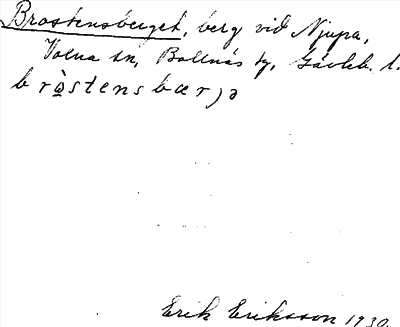 Brostensberget, berg vid Njupa,
Voxna sn, Bollnäs tg, Gävleb. l.
bro̱̊stensbærjə
Erik Eriksson 1930.